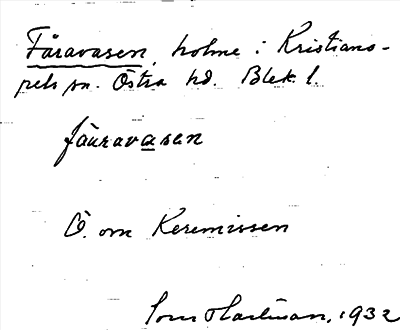 Fåravasen, holme i Kristiano-
pels sn. Östra hd. Blek. l.
fåuravasen
Ö. om Keremissen
Hartman, 1932